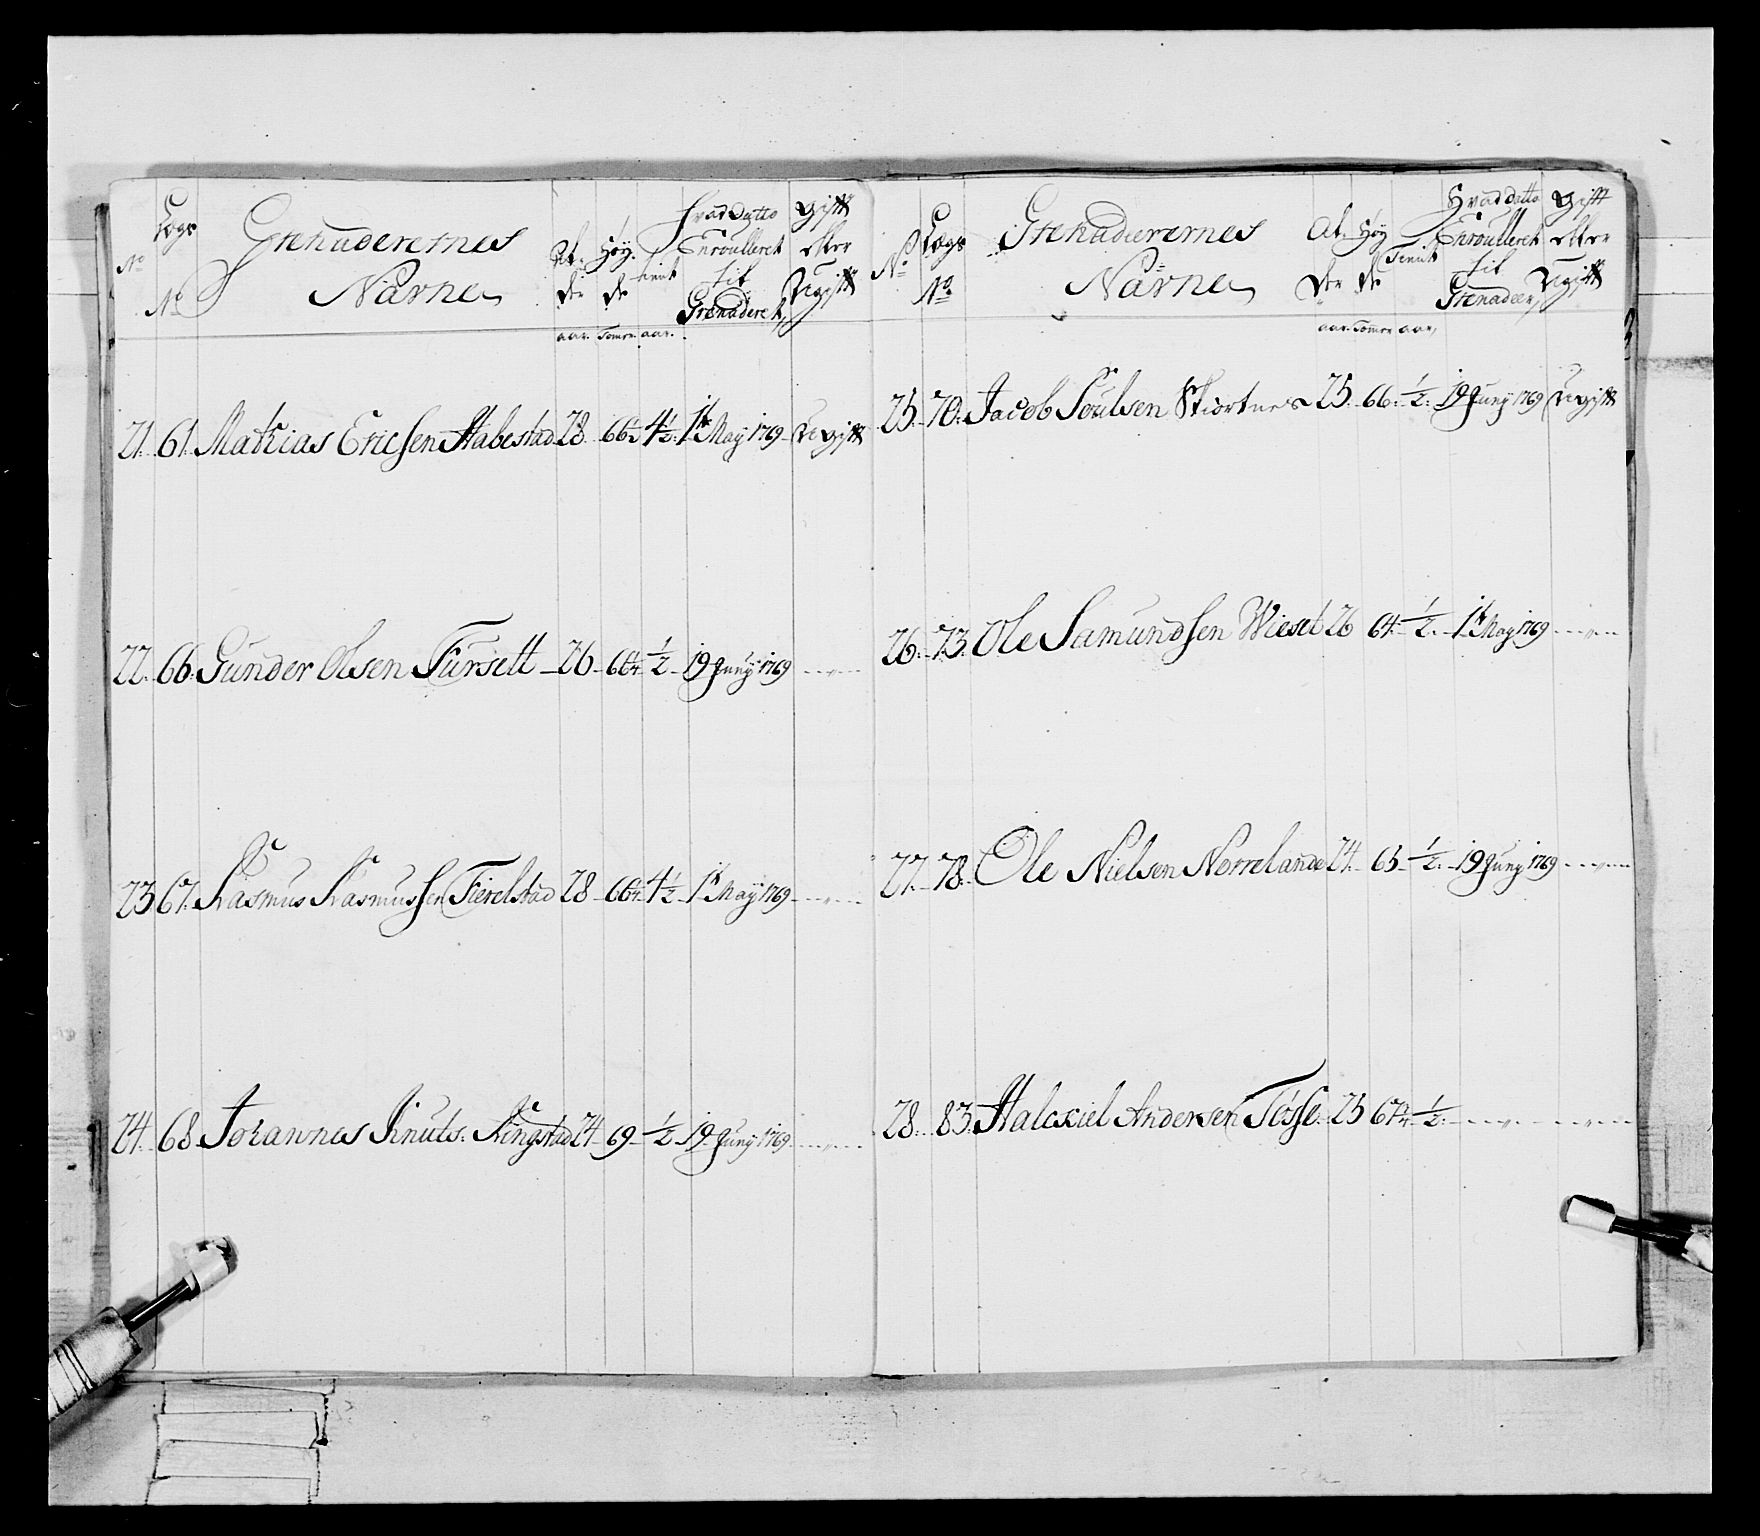 No Lægs No Grenaderernes Nafne Al- der Høy- de Tient Hvad Datto Enroulleret til Grenaderet, Gift eller Ugift
aar. Tomer. aar.
21. 61. Mathias Ericsen Habestad 28. 66½ 4½. 1te May 1769 Ugift
22. 66. Gunder Olsen Fürsett 26 66¼ ½ 19 Juny 1769 — " —
23 67. Rasmus Rasmussen Fierelstad 28 66¼ 4½ 1te May 1769 — " —
24. 68 Johannes Knuts. Ringstad 24 69 ½ 19 Juny 1769 — " —
No Lægs No Grenaderernes Nafne Al- der Høy de Tient Hvad datto Enroulleret til Grenadeer, Gift eller Ugift
aar. Tomer aar,
25. 70. Jacob Poulsen Skiortnes 25 66 ½ 19 Juny 1769 Ugift
26. 73. Ole Samundsen Wieset 26 64 ½ 1te May 1769 — " —
27. 78. Ole Nielsen Norrelande 24 65 ½ 19 Juny 1769 — " —
28. 83. Halcxiel Andersen Tösse 25 67¼ ½ — " — — " —